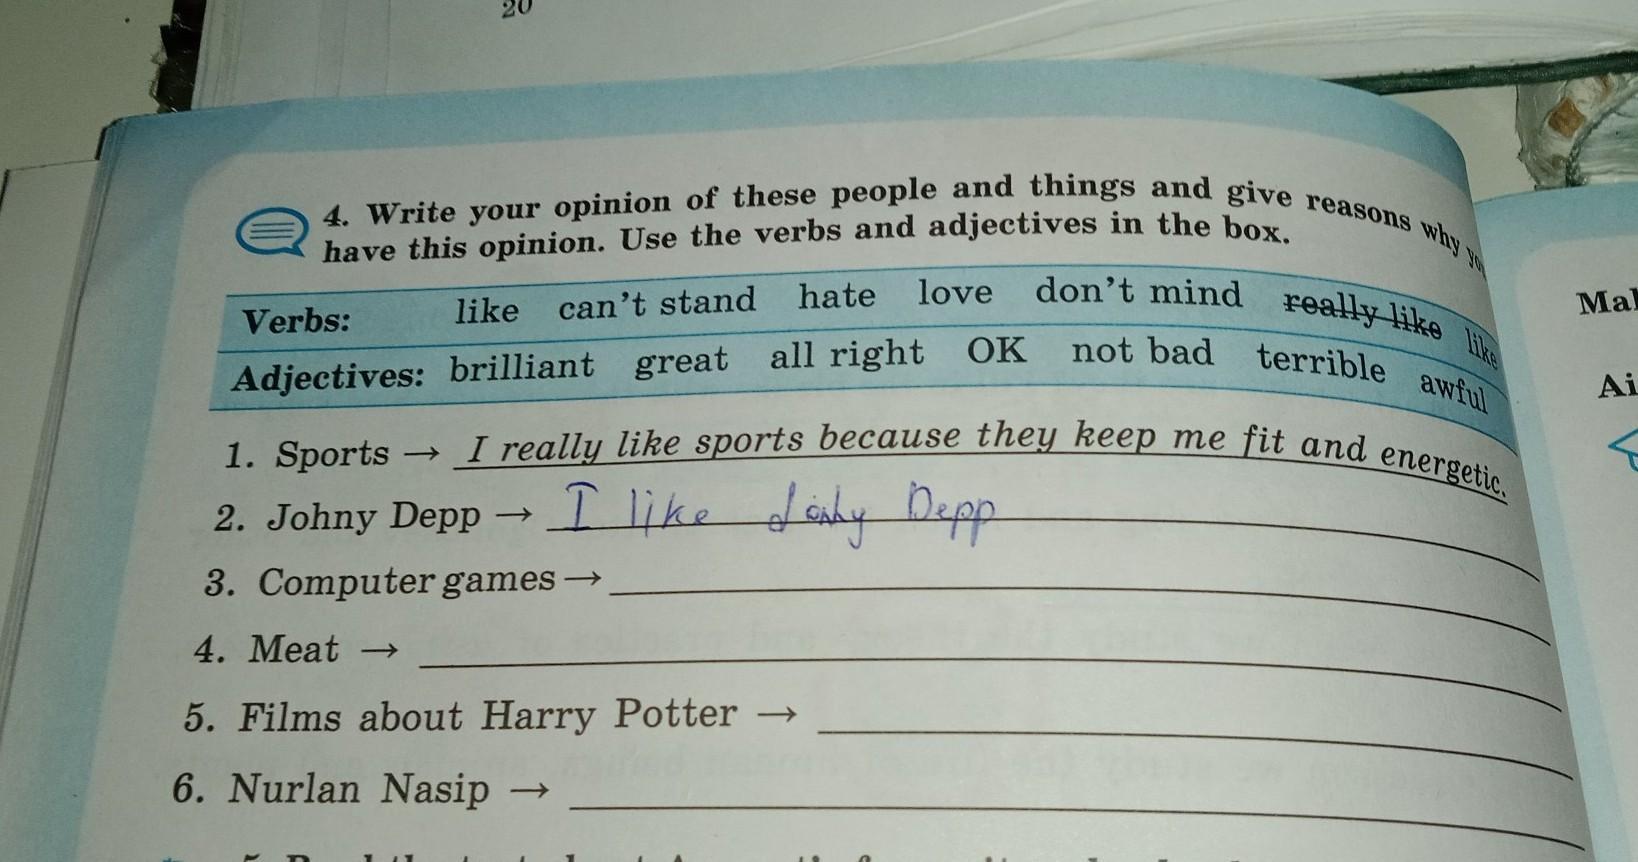 20
4. Write your opinion of these people and things and give reasons why you
have this opinion. Use the verbs and adjectives in the box.
Verbs: like can't stand hate love don't mind really like like
Adjectives: brilliant great all right OK not bad terrible awful
1. Sports → I really like sports because they keep me fit and energetic.
2. Johny Depp → I like Depp
3. Computer games →
4. Meat →
5. Films about Harry Potter →
6. Nurlan Nasip →
Mal
Ai